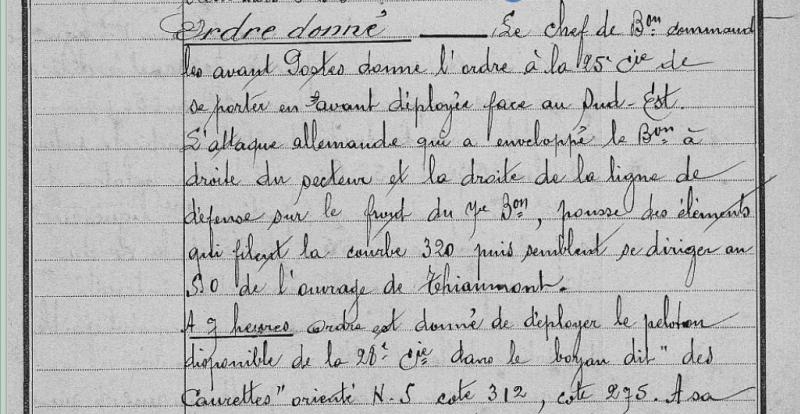 Ordre donné — Le chef de Bon command
les avant Postes donne l'ordre à la 25e Cie de
se porter en avant déployée face au Sud-Est.
L'attaque allemande qui a enveloppé le Bon à
droite du secteur et la droite de la ligne de
défense sur le front du 7e Bon, pousse des éléments
qui filent la courbe 320 puis semblent se diriger au
SO de l'ouvrage de Thiaumont.
A 9 heures ordre est donné de déployer le peloton
disponible de la 28e Cie dans le boyau dit "des
Caurettes" orienté N.S cote 312, cote 275. A sa